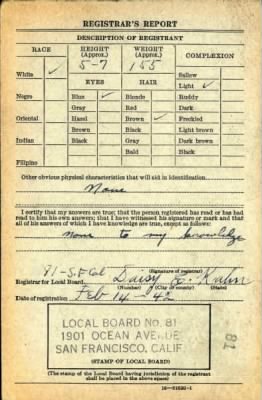 REGISTRAR'S REPORT
DESCRIPTION OF REGISTRANT
RACE HEIGHT (Approx.) WEIGHT (Approx.) COMPLEXION
White ✓ 5-7 155 Sallow
EYES HAIR Light ✓
Negro Blue ✓ Blonde Ruddy
Gray Red Dark
Oriental Hazel Brown ✓ Freckled
Brown Black Light brown
Indian Black Gray Dark brown
Bald Black
Filipino
Other obvious physical characteristics that will aid in identification
None
I certify that my answers are true; that the person registered has read or has had
read to him his own answers; that I have witnessed his signature or mark and that
all of his answers of which I have knowledge are true, except as follows:
None to my knowledge
Daisy E. Kahn
(Signature of registrar)
Registrar for Local Board 91-S.F. Cal
(Number) (City or county) (State)
Date of registration Feb 14-42
LOCAL BOARD NO. 81
1901 OCEAN AVENUE
SAN FRANCISCO, CALIF.
(STAMP OF LOCAL BOARD)
81
(The stamp of the Local Board having jurisdiction of the registrant
shall be placed in the above space.)